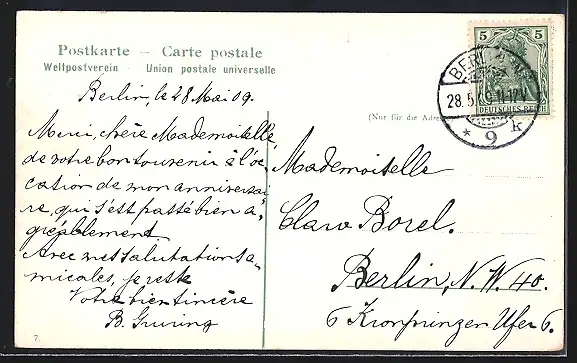 Postkarte — Carte postale
Weltpostverein - Union postale universelle
Berlin, le 28 Mai 09.
Merci, chère Mademoiselle,
de votre bon souvenir à l'oc-
casion de mon anniversai-
re, qui s'est passé bien a-
gréablement.
Avec mes salutations a-
micales, je reste
Votre bien sincère
B.
7.
5 5
DEUTSCHES REICH
BERLIN
28.5.09. 11-12V.
* 9 k
(Nur für die Adre
Mademoiselle
Clara Borel.
Berlin, N.W. 40.
6 Kronprinzen Ufer 6.